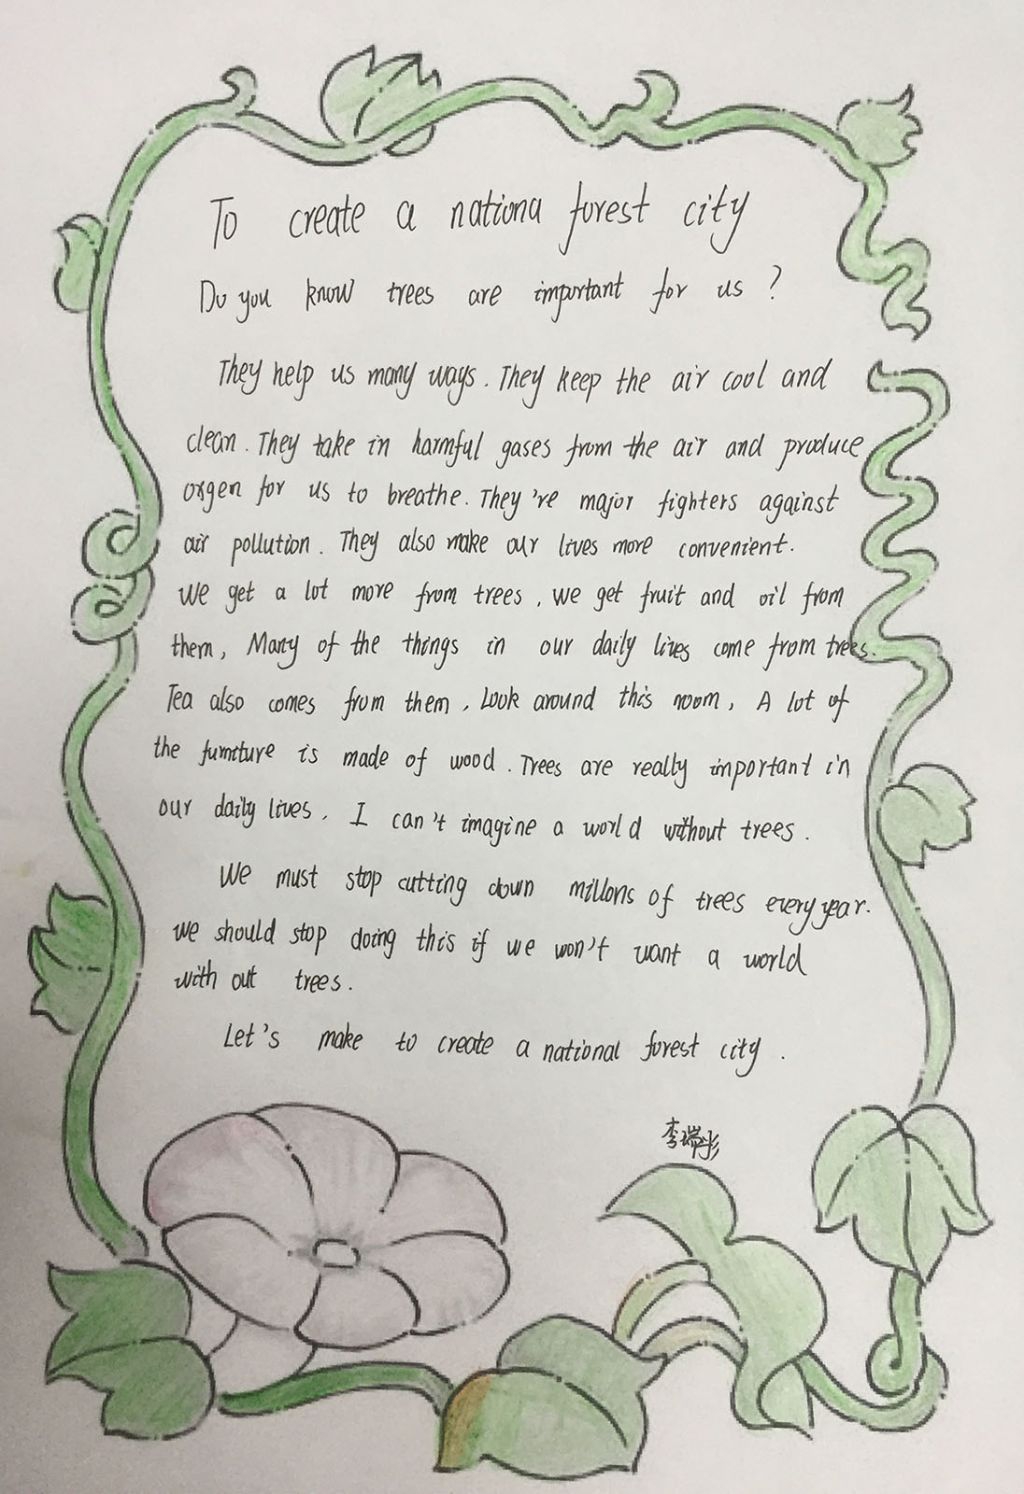 To create a nationa forest city
Do you know trees are important for us ?
They help us many ways. They keep the air cool and
clean. They take in harmful gases from the air and produce
oxgen for us to breathe. They're major fighters against
air pollution. They also make our lives more convenient.
We get a lot more from trees, we get fruit and oil from
them, Many of the things in our daily lives come from trees.
Tea also comes from them, Look around this room, A lot of
the furniture is made of wood. Trees are really important in
our daily lives, I can't imagine a world without trees.
We must stop cutting down millons of trees every year.
we should stop doing this if we won't want a world
with out trees.
Let's make to create a national forest city.
李瑞彤